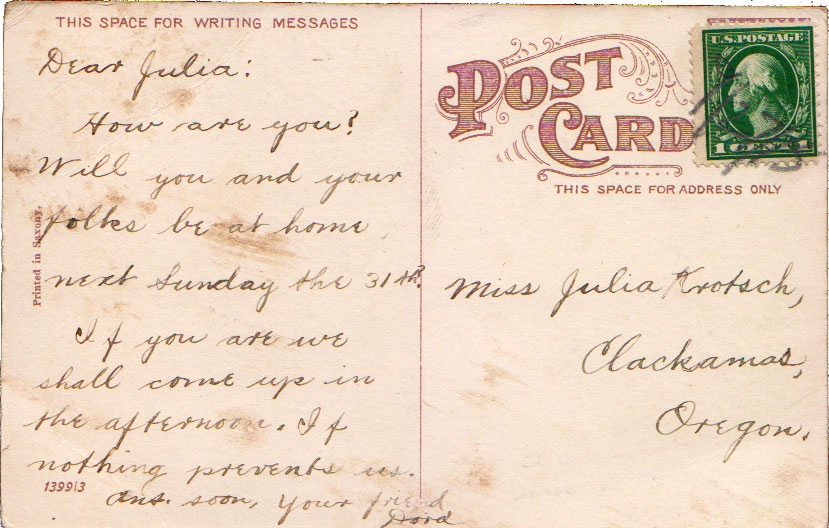 THIS SPACE FOR WRITING MESSAGES
Dear Julia:
How are you?
Will you and your
folks be at home
next Sunday the 31th?
If you are we
shall come up in
the afternoon. If
nothing prevents us.
Ans. soon, Your friend
Dora
Printed in Saxony.
13993
POST
CARD
U.S. POSTAGE
1 CENT 1
THIS SPACE FOR ADDRESS ONLY
Miss Julia Krotsch,
Clackamas,
Oregon.